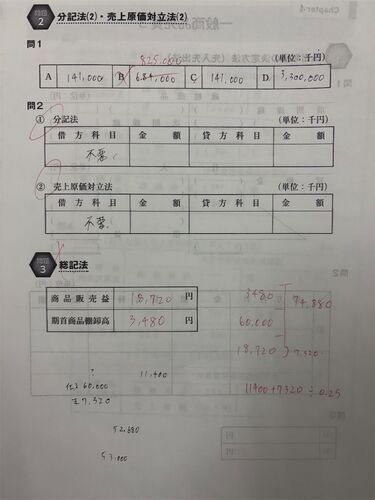 問題
2 分記法(2)・売上原価対立法(2)
問1
825,000
(単位：千円)
A 141,000 B 684,000 C 141,000 D 3,300,000
問2
① 分記法 (単位：千円)
借方科目 金額 貸方科目 金額
不要
② 売上原価対立法 (単位：千円)
借方科目 金額 貸方科目 金額
不要
問題
3 総記法
商品販売益 18,720 円
期首商品棚卸高 3,480 円
3480
74,880
60,000
18,720 ) 7,320
11400+7320 ÷0.25
? 11,400
仕 60,000
7,320
52,880
円
円